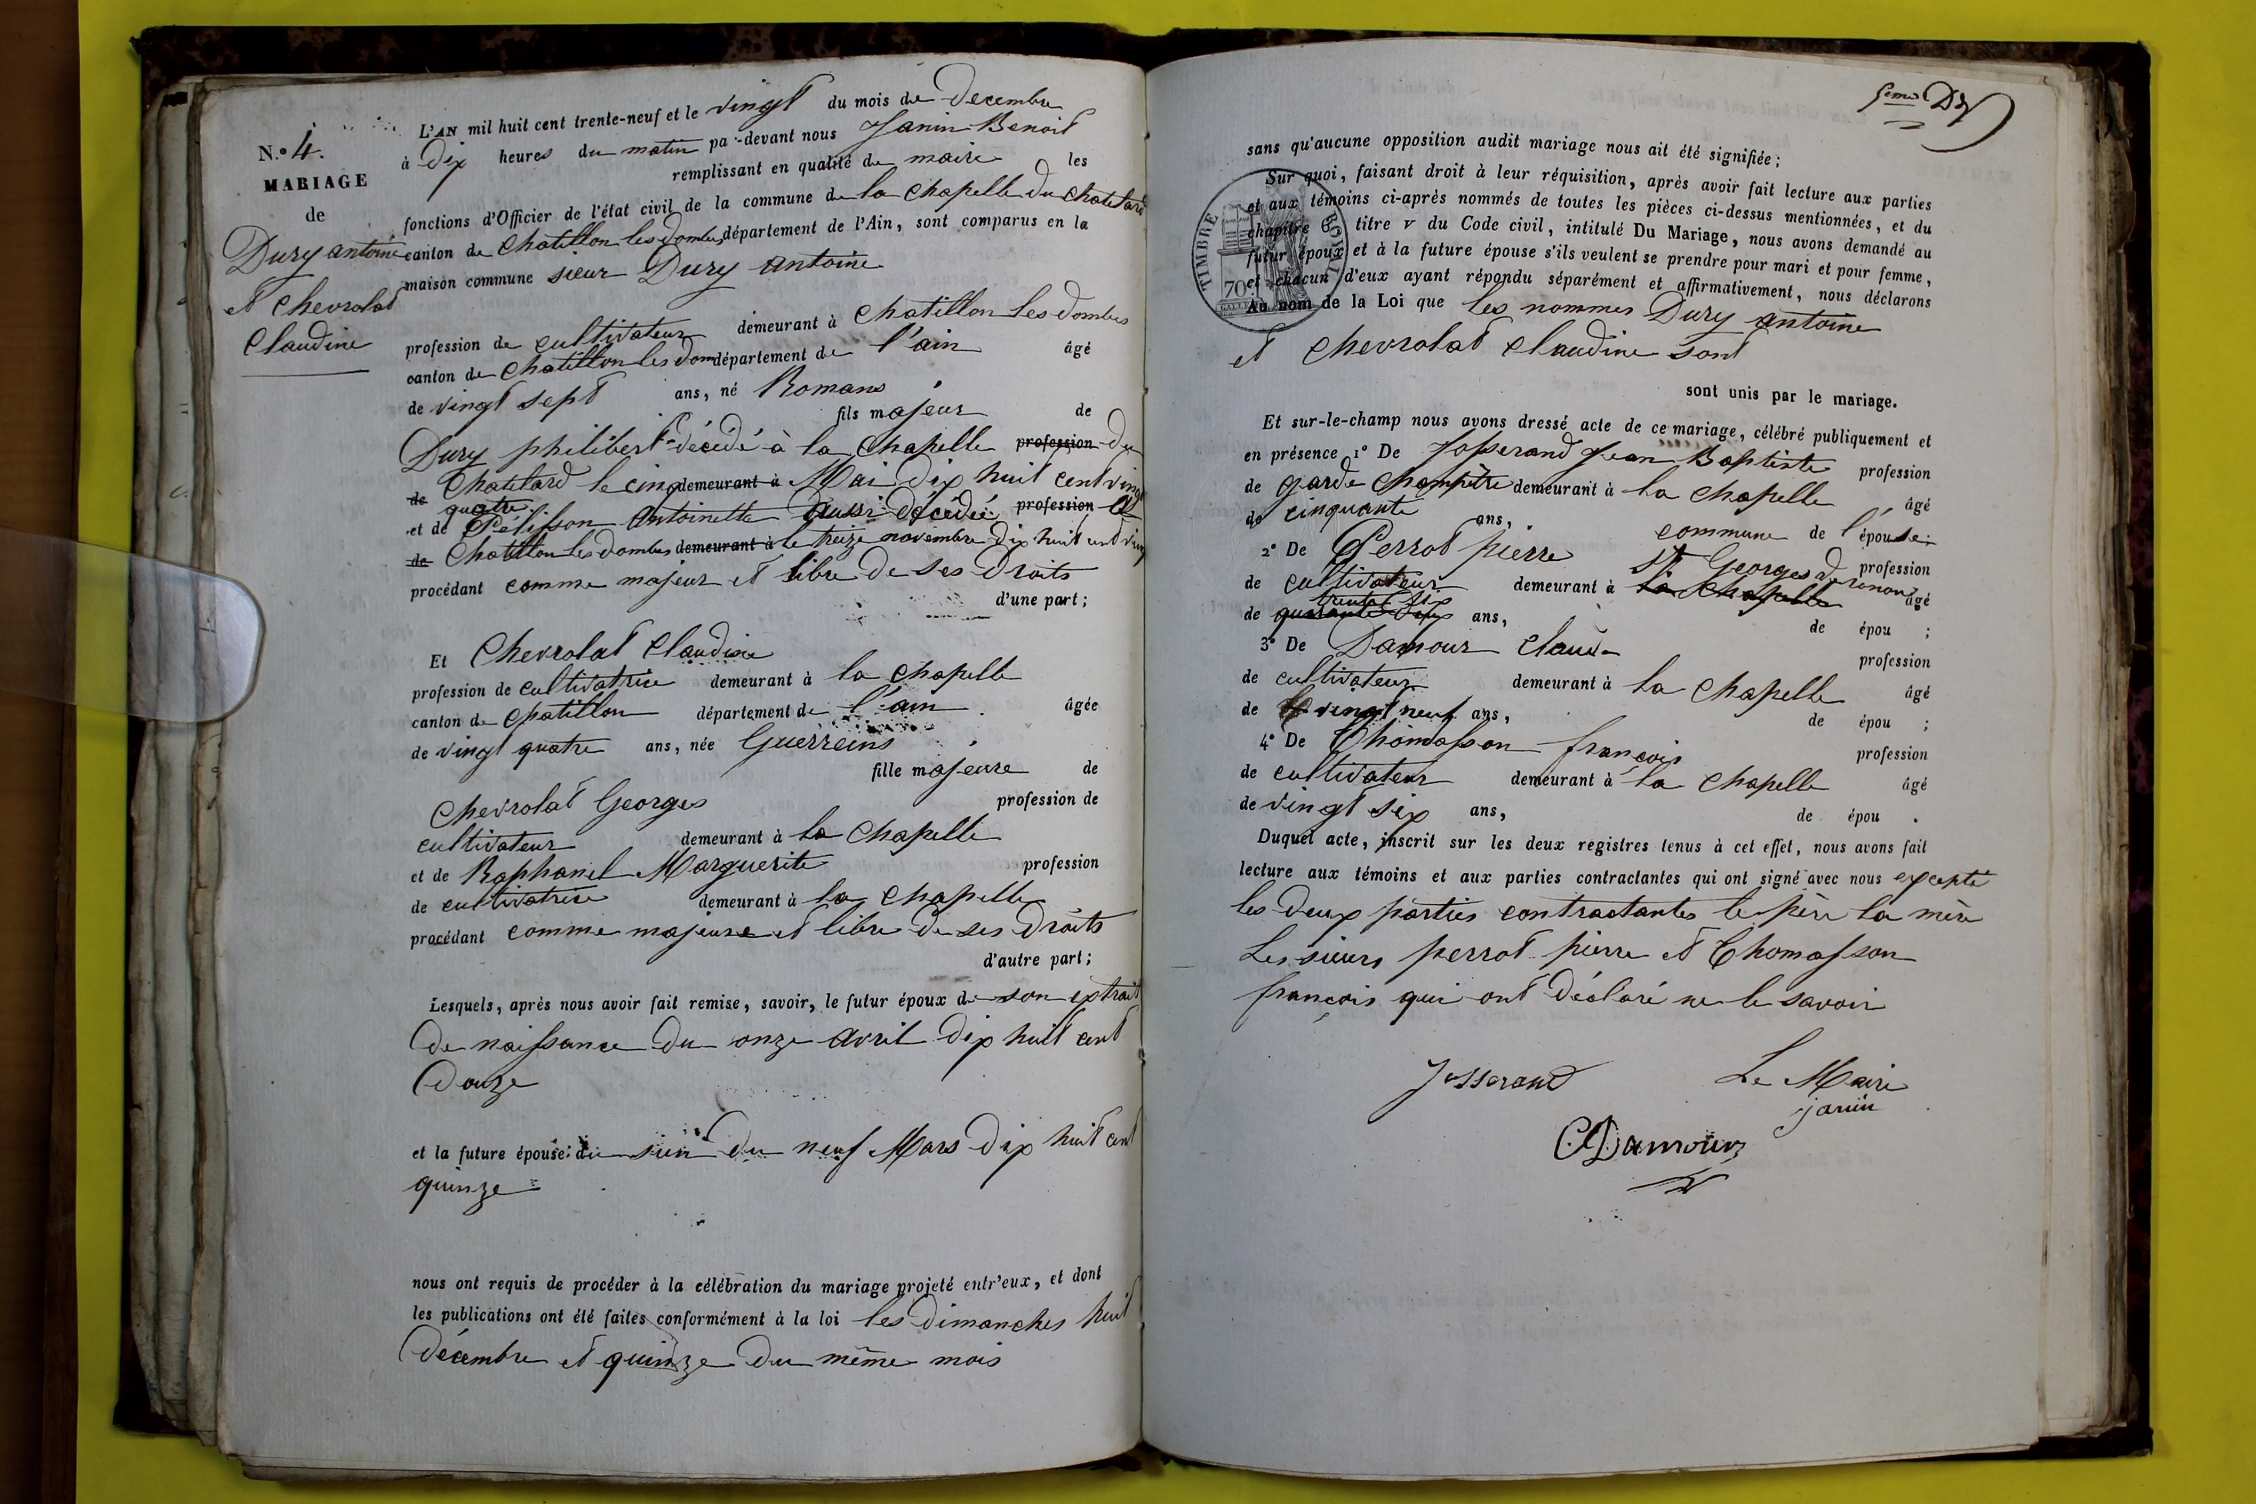 N.º 4.
MARIAGE
de
Dury antoine
et Chevrolat
Claudine
L'AN mil huit cent trente-neuf et le vingt du mois de decembre
à dix heures du matin pa-devant nous Janin Benoit
remplissant en qualité de maire les
fonctions d'Officier de l'état civil de la commune de la chapelle du chatelard
canton de Chatillon les dombes département de l'Ain, sont comparus en la
maison commune sieur Dury antoine
profession de cultivateur demeurant à chatillon les dombes
canton de chatillon les dom département de l'ain âgé
de vingt sept ans, né Romans
fils majeur de
Dury philibert décédé à la chapelle profession du
de Chatelard le cinq demeurant à Mai dix huit cent vingt
quatre
et de Pélisson antoinette aussi décédée profession
de Chatillon les dombes demeurant à le treize novembre dix huit cent
procédant comme majeur et libre de ses droits
d'une part;
Et Chevrolat Claudine
profession de cultivatrice demeurant à la chapelle
canton de chatillon département de l'ain âgée
de vingt quatre ans, née Guerreins
fille majeure de
Chevrolat Georges profession de
cultivateur demeurant à la chapelle
et de Raphanel Marguerite profession
de cultivatrice demeurant à la chapelle
procédant comme majeure et libre de ses droits
d'autre part;
Lesquels, après nous avoir fait remise, savoir, le futur époux de son extrait
de naissance du onze avril dix huit cent
douze
et la future épouse: du sien du neuf Mars dix huit cent
quinze
nous ont requis de procéder à la célébration du mariage projeté entr'eux, et dont
les publications ont été faites conformément à la loi les dimanches huit
décembre et quinze du même mois
sans qu'aucune opposition audit mariage nous ait été signifiée;
Sur quoi, faisant droit à leur réquisition, après avoir fait lecture aux parties
et aux témoins ci-après nommés de toutes les pièces ci-dessus mentionnées, et du
chapitre 6 titre v du Code civil, intitulé Du Mariage, nous avons demandé au
futur époux et à la future épouse s'ils veulent se prendre pour mari et pour femme,
et chacun d'eux ayant répondu séparément et affirmativement, nous déclarons
Au nom de la Loi que les nommes Dury antoine
et Chevrolat Claudine sont
sont unis par le mariage.
TIMBRE ROYAL
70
Et sur-le-champ nous avons dressé acte de ce mariage, célébré publiquement et
en présence 1º De Josserand Jean Baptiste profession
de garde champêtre demeurant à la chapelle âgé
de cinquante ans,
commune de l'épouse;
2º De Perrot pierre profession
St Georges de renon
de cultivateur demeurant à la chapelle âgé
trente six
de quarante deux ans,
de épou ;
3º De Damour Claude profession
de cultivateur demeurant à la chapelle âgé
de vingt neuf ans,
de épou ;
4º De Thomasson françois profession
de cultivateur demeurant à la chapelle âgé
de vingt six ans,
de épou .
Duquel acte, inscrit sur les deux registres tenus à cet effet, nous avons fait
lecture aux témoins et aux parties contractantes qui ont signé avec nous excepté
les deux parties contractantes le père la mère
Les sieurs perrot pierre et Thomasson
françois qui ont déclaré ne le savoir
Josserand
Le Maire
janin
C. Damour